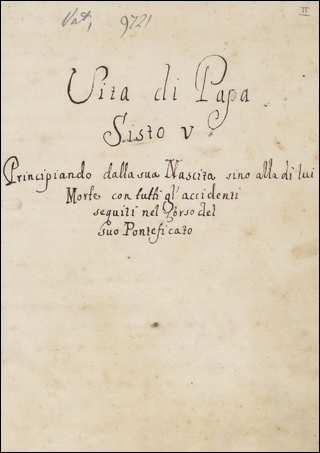 II
Vat. 9721
Vita di Papa
Sisto V
Principiando dalla sua Nascita sino alla di lui
Morte con tutti gl'accidenti
seguiti nel Corso del
suo Ponteficato